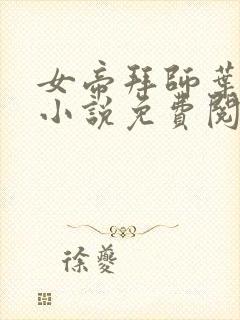 女帝拜師葉
小說免費閱
徐夔